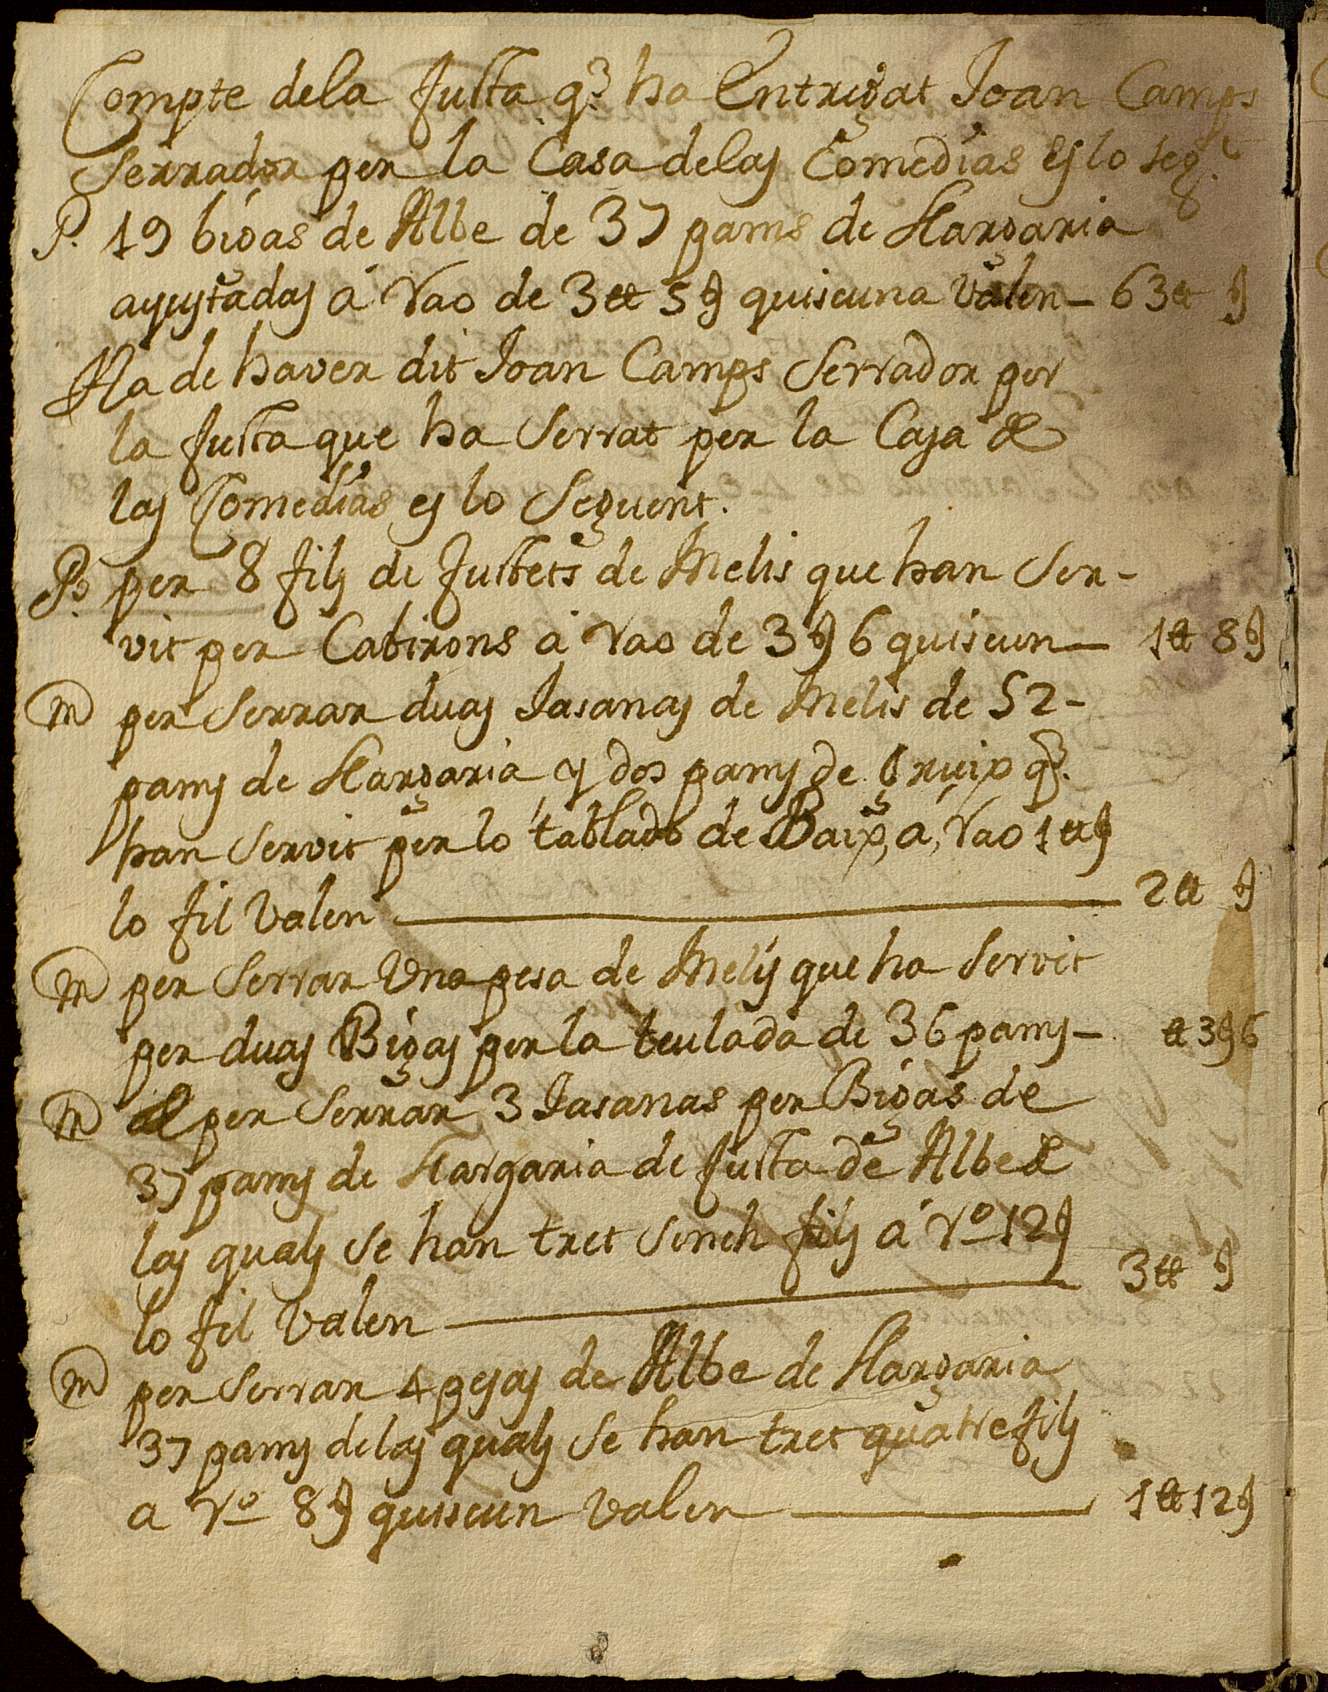 Compte dela fusta q.e ha Entrigat Joan Camps
Serrador per la Casa delas Comedias es lo seg.t
P. 19 bigas de Albe de 37 pams de llargaria
ajustadas á rao de 3 ₶ 5 ſ quiscuna valen – 63 ₶ ſ
Ha de haver dit Joan Camps Serrador per
la fusta que ha Serrat per la Casa de
las Comedias es lo Seguent.
P.o per 8 fils de fustets de Melis que han Ser-
vit per Cabirons á rao de 3 ſ 6 quiscun – 1 ₶ 8 ſ
m per Serrar duas Jasanas de Melis de 52-
pams de llargaria y dos pams de gruix q.e
han servit per lo tablado de Baix, á, rao 1 ₶ ſ
lo fil valen — 2 ₶ ſ
m per Serrar Una pesa de Melis que ha servit
per duas Bigas per la teulada de 36 pams – ₶ 3 ſ 6
m per Serrar 3 Jasanas per Bigas de
37 pams de llargaria de fusta de Albe de
las quals se han tret sinch fils á r.o 12 ſ
lo fil valen — 3 ₶ ſ
m per serrar 4 pesas de Albe de llargaria
37 pams de las quals se han tret quatre fils
a r.o 8 ſ quiscun valen — 1 ₶ 12 ſ